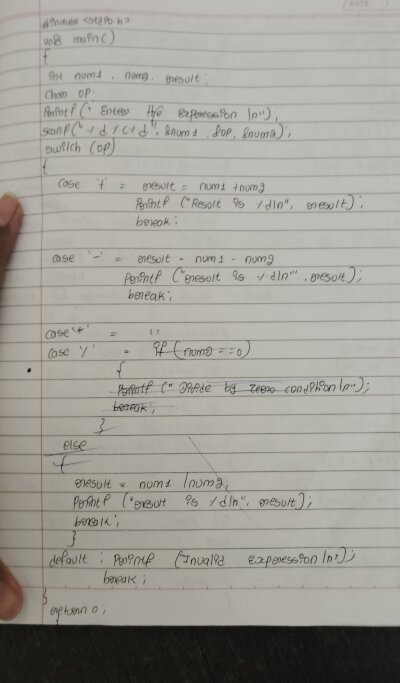 #include <stdio.h>
void main()
{
int num1, num2, result;
char op;
printf("Enter the expression \n");
scanf("%d%c%d", &num1, &op, &num2);
switch (op)
{
case '+' = result = num1 + num2
printf ("Result is %d\n", result);
break;
case '-' = result = num1 - num2
printf ("result is %d\n", result);
break;
case '*' = "
case '/' = if (num2 == 0)
{
printf (" Divide by zero condition \n");
break;
}
else
{
result = num1 / num2;
printf ("result is %d\n", result);
break;
}
default : printf ("Invalid expression \n");
break;
}
return 0;
}